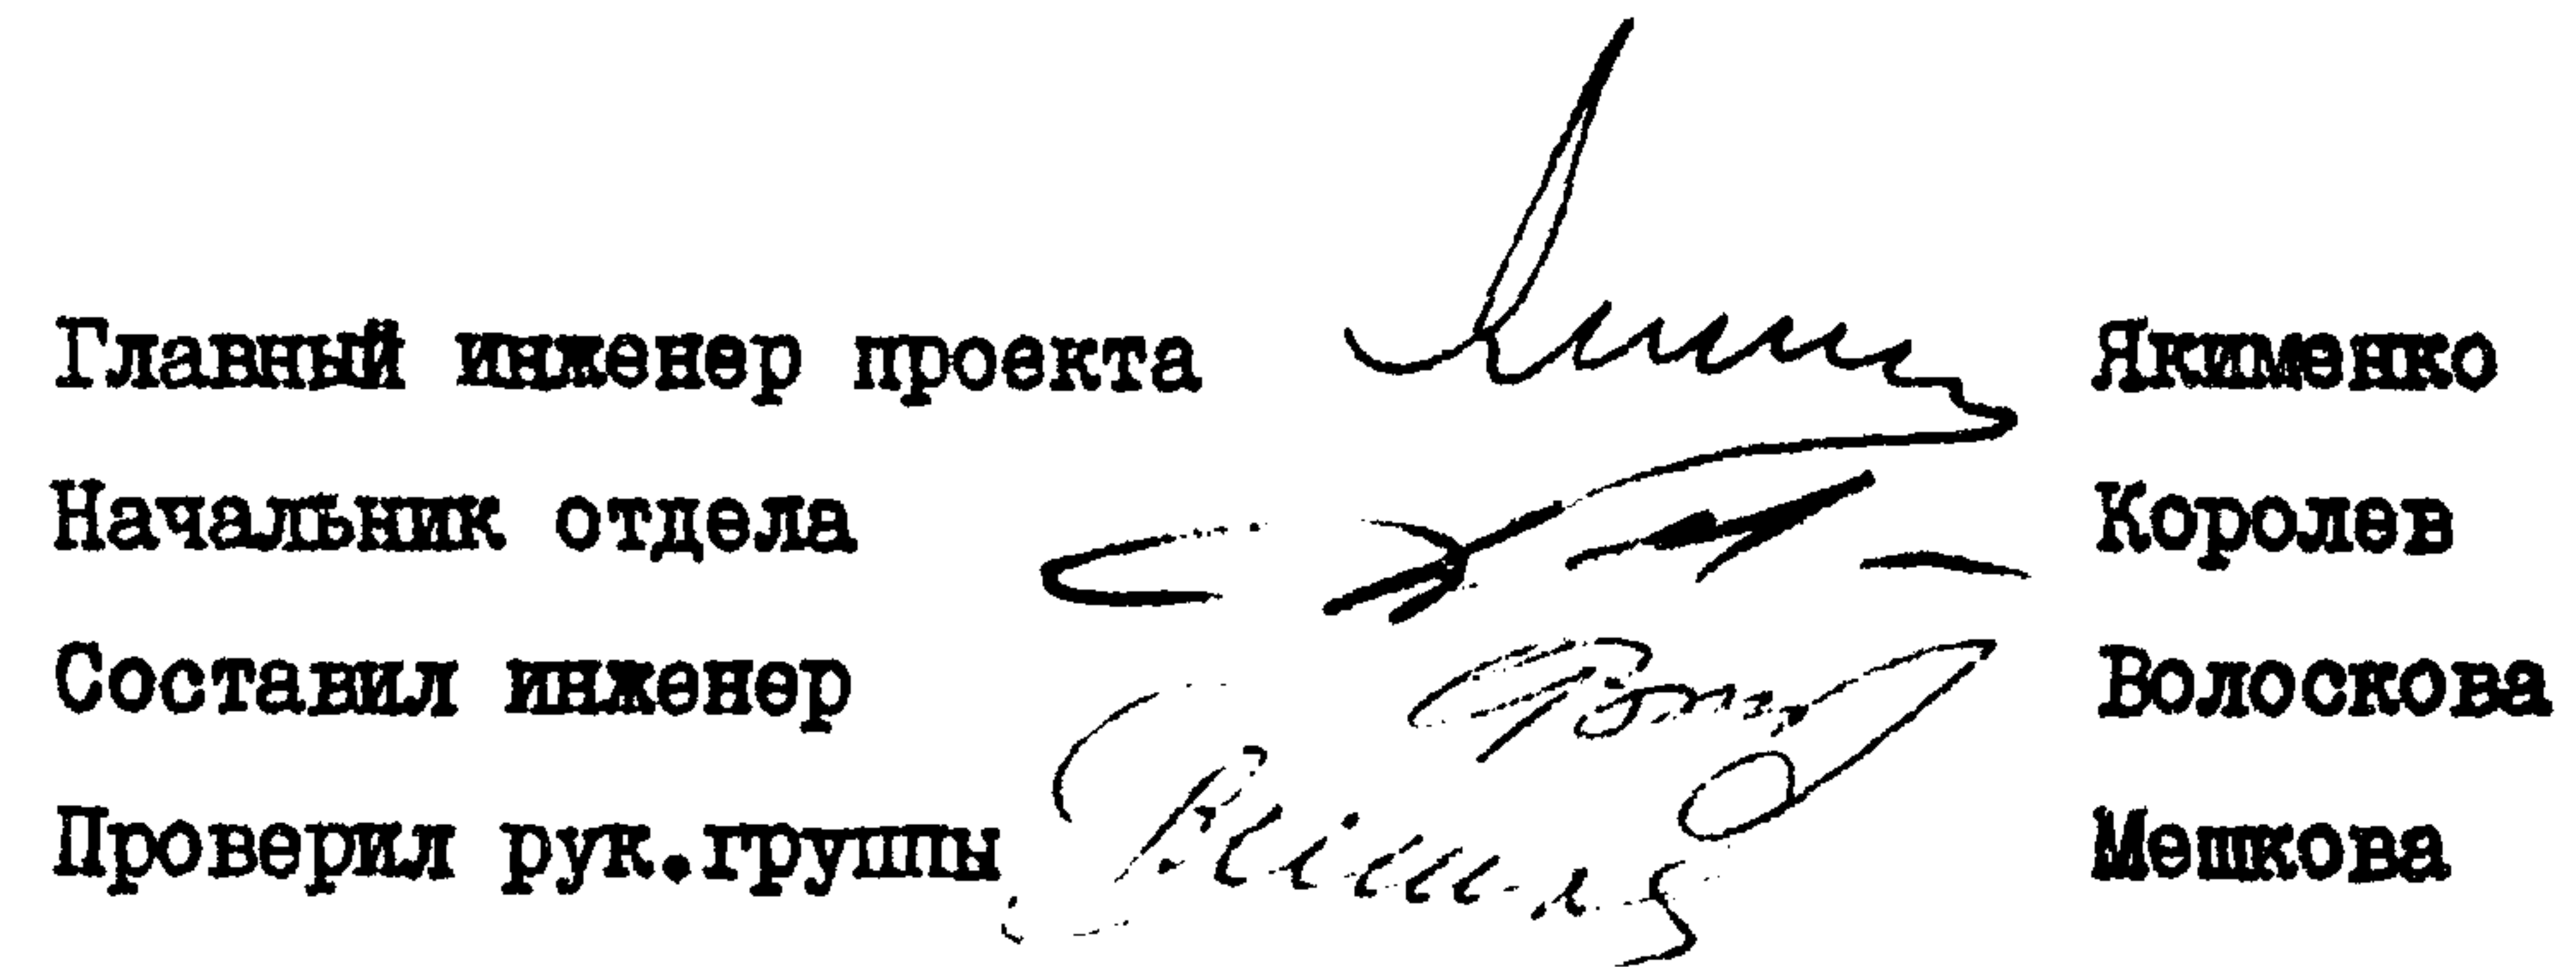 Главный инженер проекта Якименко
Начальник отдела Королев
Составил инженер Волоскова
Проверил рук.группы Мешкова